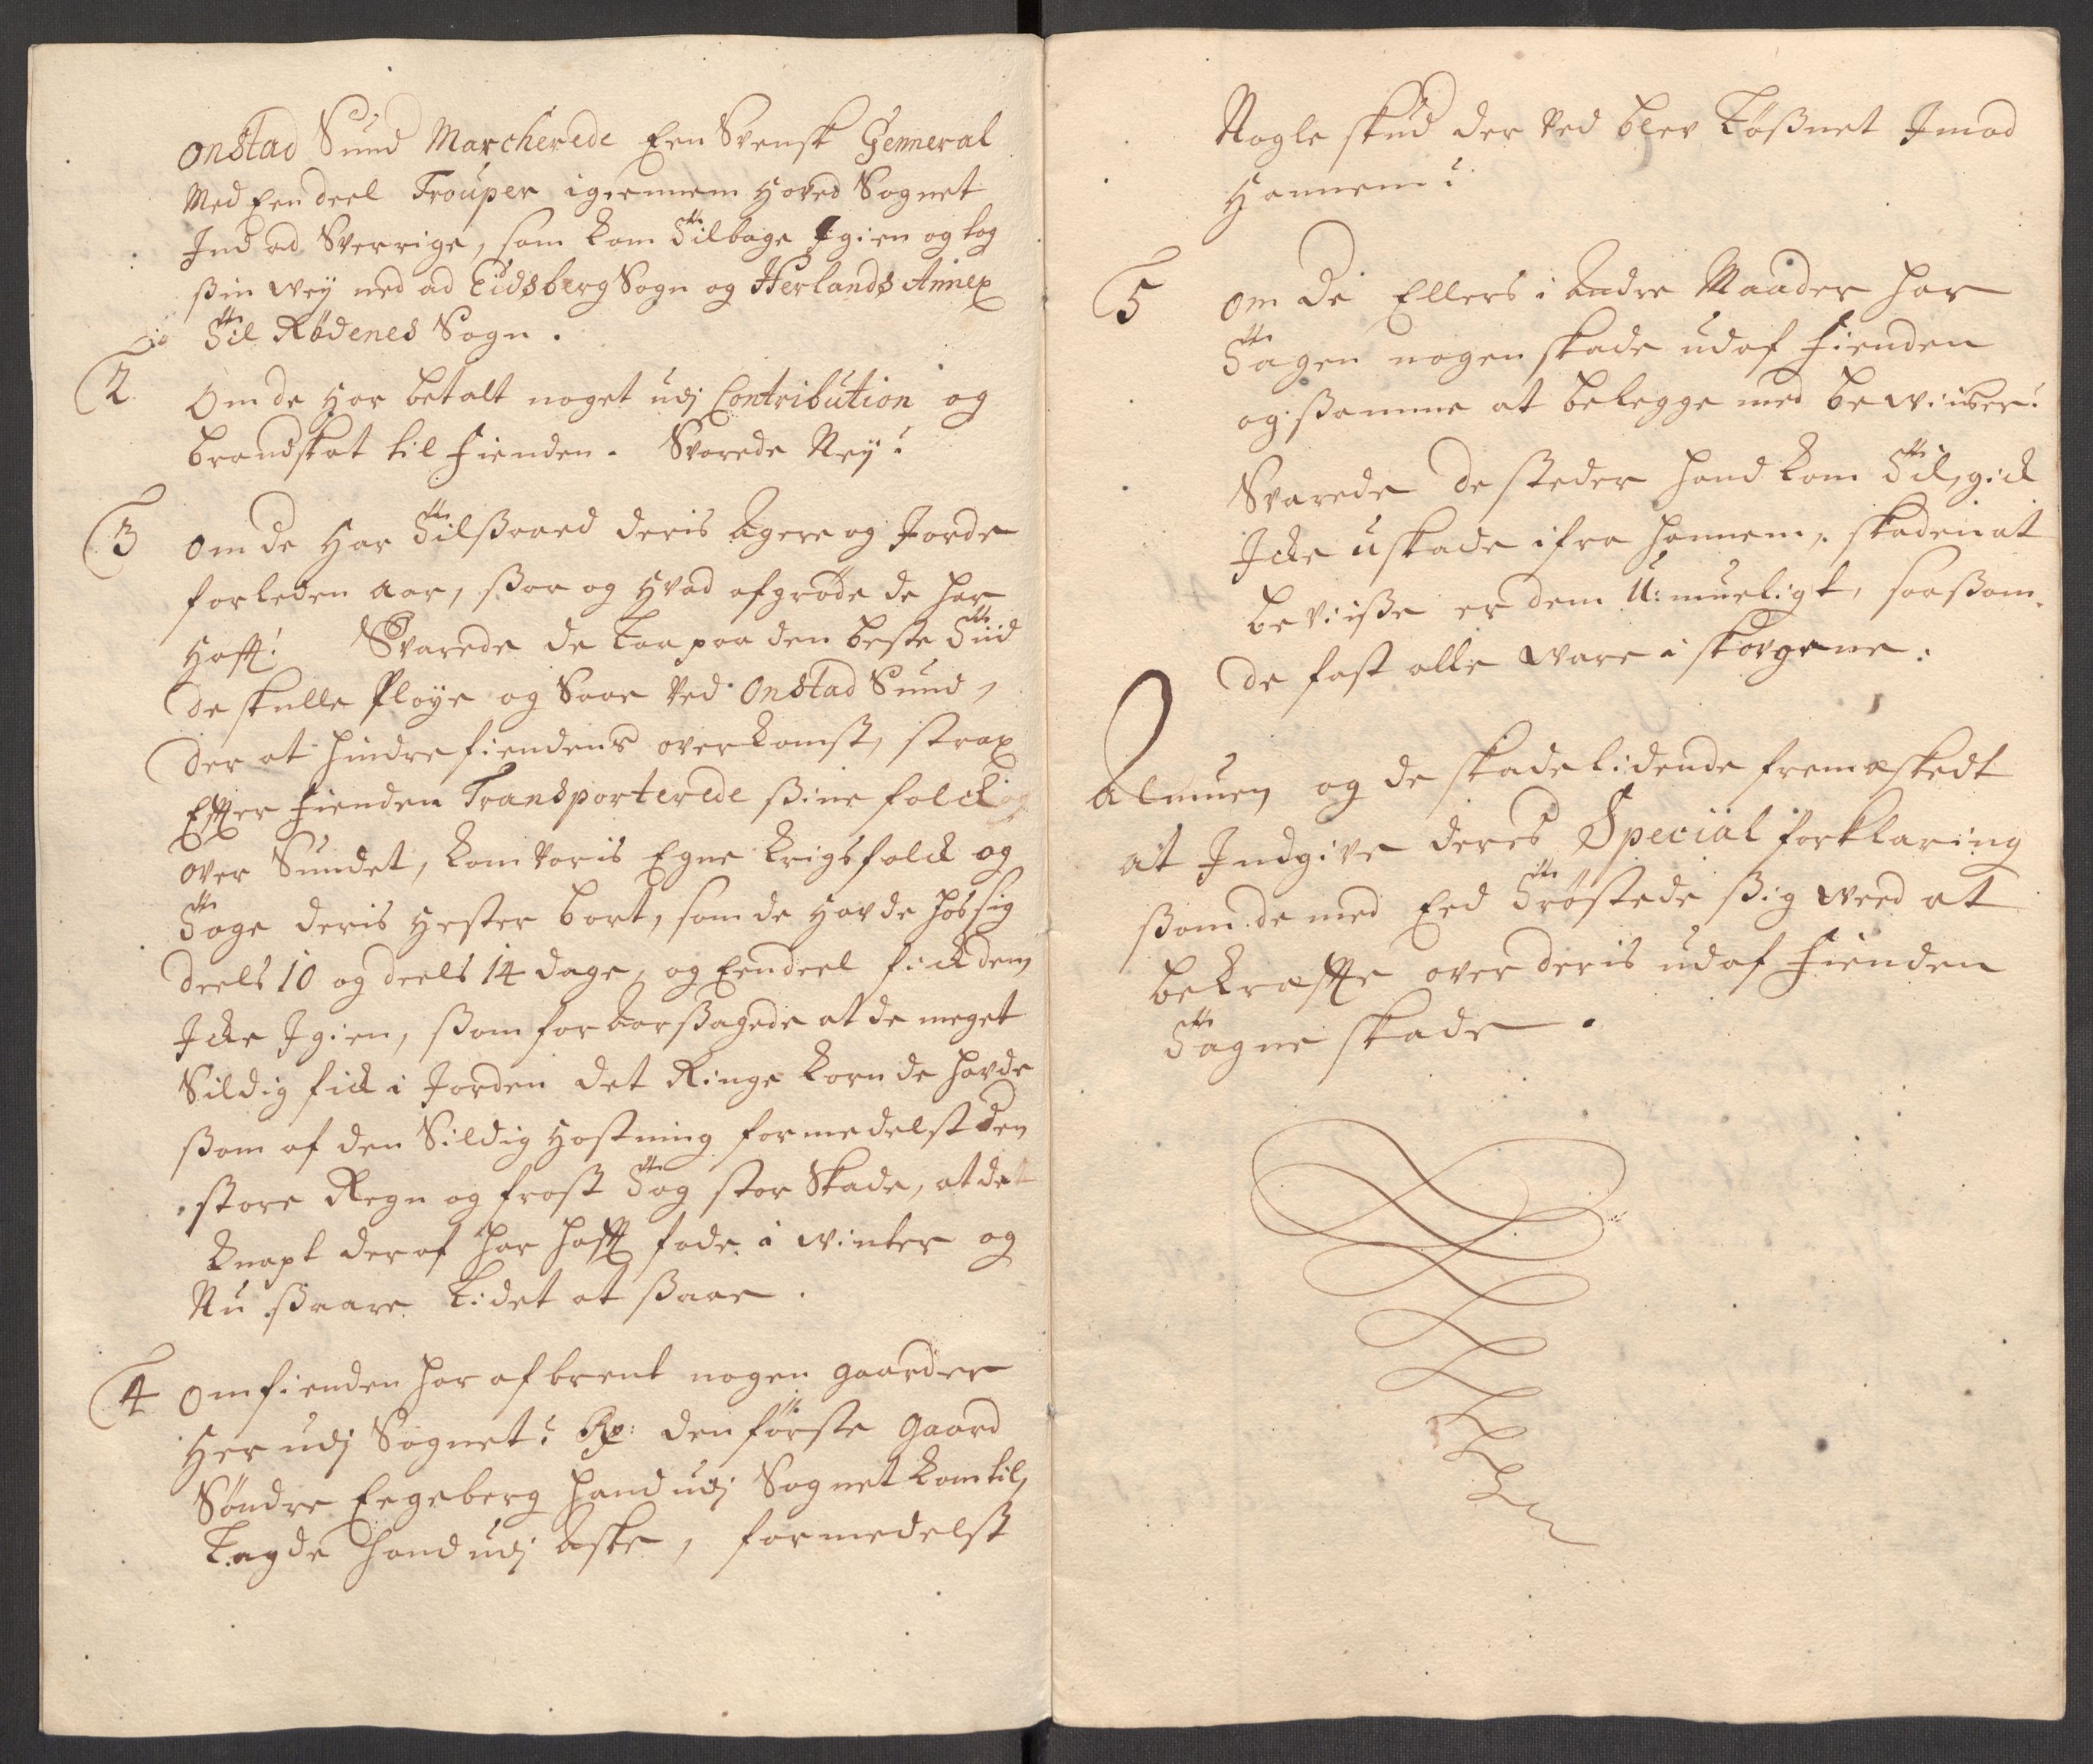 onstad Sund Marcherede Een Svensk Gemeral
Med Een deel Trouper igiennem Hoved Sognet
Ind ad Sverrige, som kom Tilbage Igien og tog
ßin weÿ ned ad Eidsberg Sogn og Herlands Annex
Til Rødenes Sogn.
2 Om de Har betalt noget udj Contribution og
brandskat til Fienden. Svarede Neÿ:
3 Om de Har Tilßaaed deris Agere og Jorde
forleden Aar, ßaa og Hvad afgrøde de har
Hafft: Svarede de Laa paa den beste Tiid
de skulle Pløye og Saae Ved Onstad Sund,
der at hindre fiendens overkomst, strax
Effter Fienden Transporterede ßine folck og
over Sundet, kom voris Egne Krigsfolck og
Toge deris Hester bort, som de Havde hos sig
deels 10 og deels 14 dage, og Eendeel fick dem
Icke Igien, ßom foraarßagede at de meget
Sildig fick i Jorden det Ringe korn de havde
ßom af den Sildig Høstning formedelst den
store Regn og frost Tog stor Skade, at det
knapt deraf har hafft føde i winter og
Nu ßaare Lidet at ßaae.
4 Om fienden har afbrent nogen gaarder
Her udj Sognet: Rx: den første gaard
Søndre Eegeberg hand udj Sognet kom til,
Lagde hand udj Aske, formedelst
Nogle skud der Ved blev Løßnet Imod
Hannem:
5 Om de Ellers i Andre Maader har
Tagen nogen skade udaf Fienden
og ßamme at belegge med beviiser:
Svarede de steder hand kom Til, gick
Icke uskade ifra hannem, skaden at
beviiße er dem U: mueligt, saaßom
de fast alle ware i skovgene:
Almuen og de skadelidende fremæskedt
at Indgive deres Special forklaring
ßom de med Eed Trøstede ßig weed at
bekræffte over deris udaf Fienden
Tagne skade.